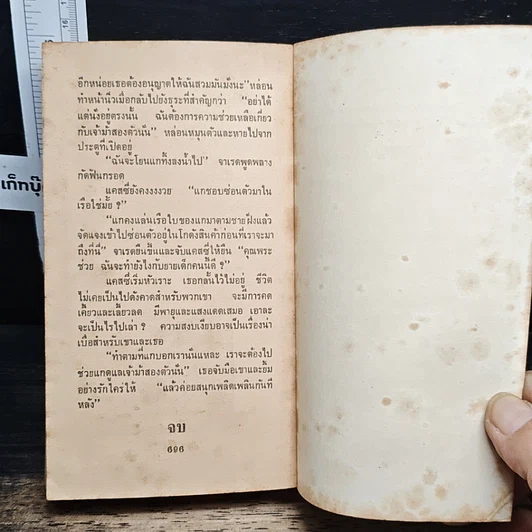 อีกหน่อยเธอต้องอนุญาตให้ฉันสวมมันมั่งนะ" หล่อน
ทำหน้านิ่วเมื่อกลับไปยังธุระที่สำคัญกว่า "อย่าได้
แต่นั่งอยู่ตรงนั้น ฉันต้องการความช่วยเหลือเกี่ยว
กับเจ้าม้าสองตัวนั่น" หล่อนหมุนตัวและหายไปจาก
ประตูที่เปิดอยู่
"ฉันจะโยนแกทิ้งลงน้ำไป" จาเรดพูดพลาง
กัดฟันกรอด
แคสซี่ยังคงงงงวย "แกชอบซ่อนตัวมาใน
เรือใช่มั้ย ?"
"แกคงแล่นเรือใบของแกมาตามชายฝั่งแล้ว
จัดแจงเข้าไปซ่อนตัวอยู่ในโกดังสินค้าก่อนที่เราจะมา
ถึงที่นี่" จาเรดยืนขึ้นและจับแคสซี่ให้ยืน "คุณพระ
ช่วย ฉันจะทำยังไงกับยายเด็กคนนี้ดี ?"
แคสซี่เริ่มหัวเราะ เธอกลั้นไว้ไม่อยู่ ชีวิต
ไม่เคยเป็นไปดังคาดสำหรับพวกเขา จะมีการคด
เคี้ยวและเลี้ยวลด มีพายุและแสงแดดเสมอ เอาละ
จะเป็นไรไปเล่า ? ความสงบเงียบอาจเป็นเรื่องน่า
เบื่อสำหรับเขาและเธอ
"ทำตามที่แกบอกเรานั่นแหละ เราจะต้องไป
ช่วยแกดูแลเจ้าม้าสองตัวนั่น" เธอจับมือเขาและยิ้ม
อย่างรักใคร่ให้ "แล้วค่อยสนุกเพลิดเพลินกันที
หลัง"
จบ
696
เก็กบุ๊